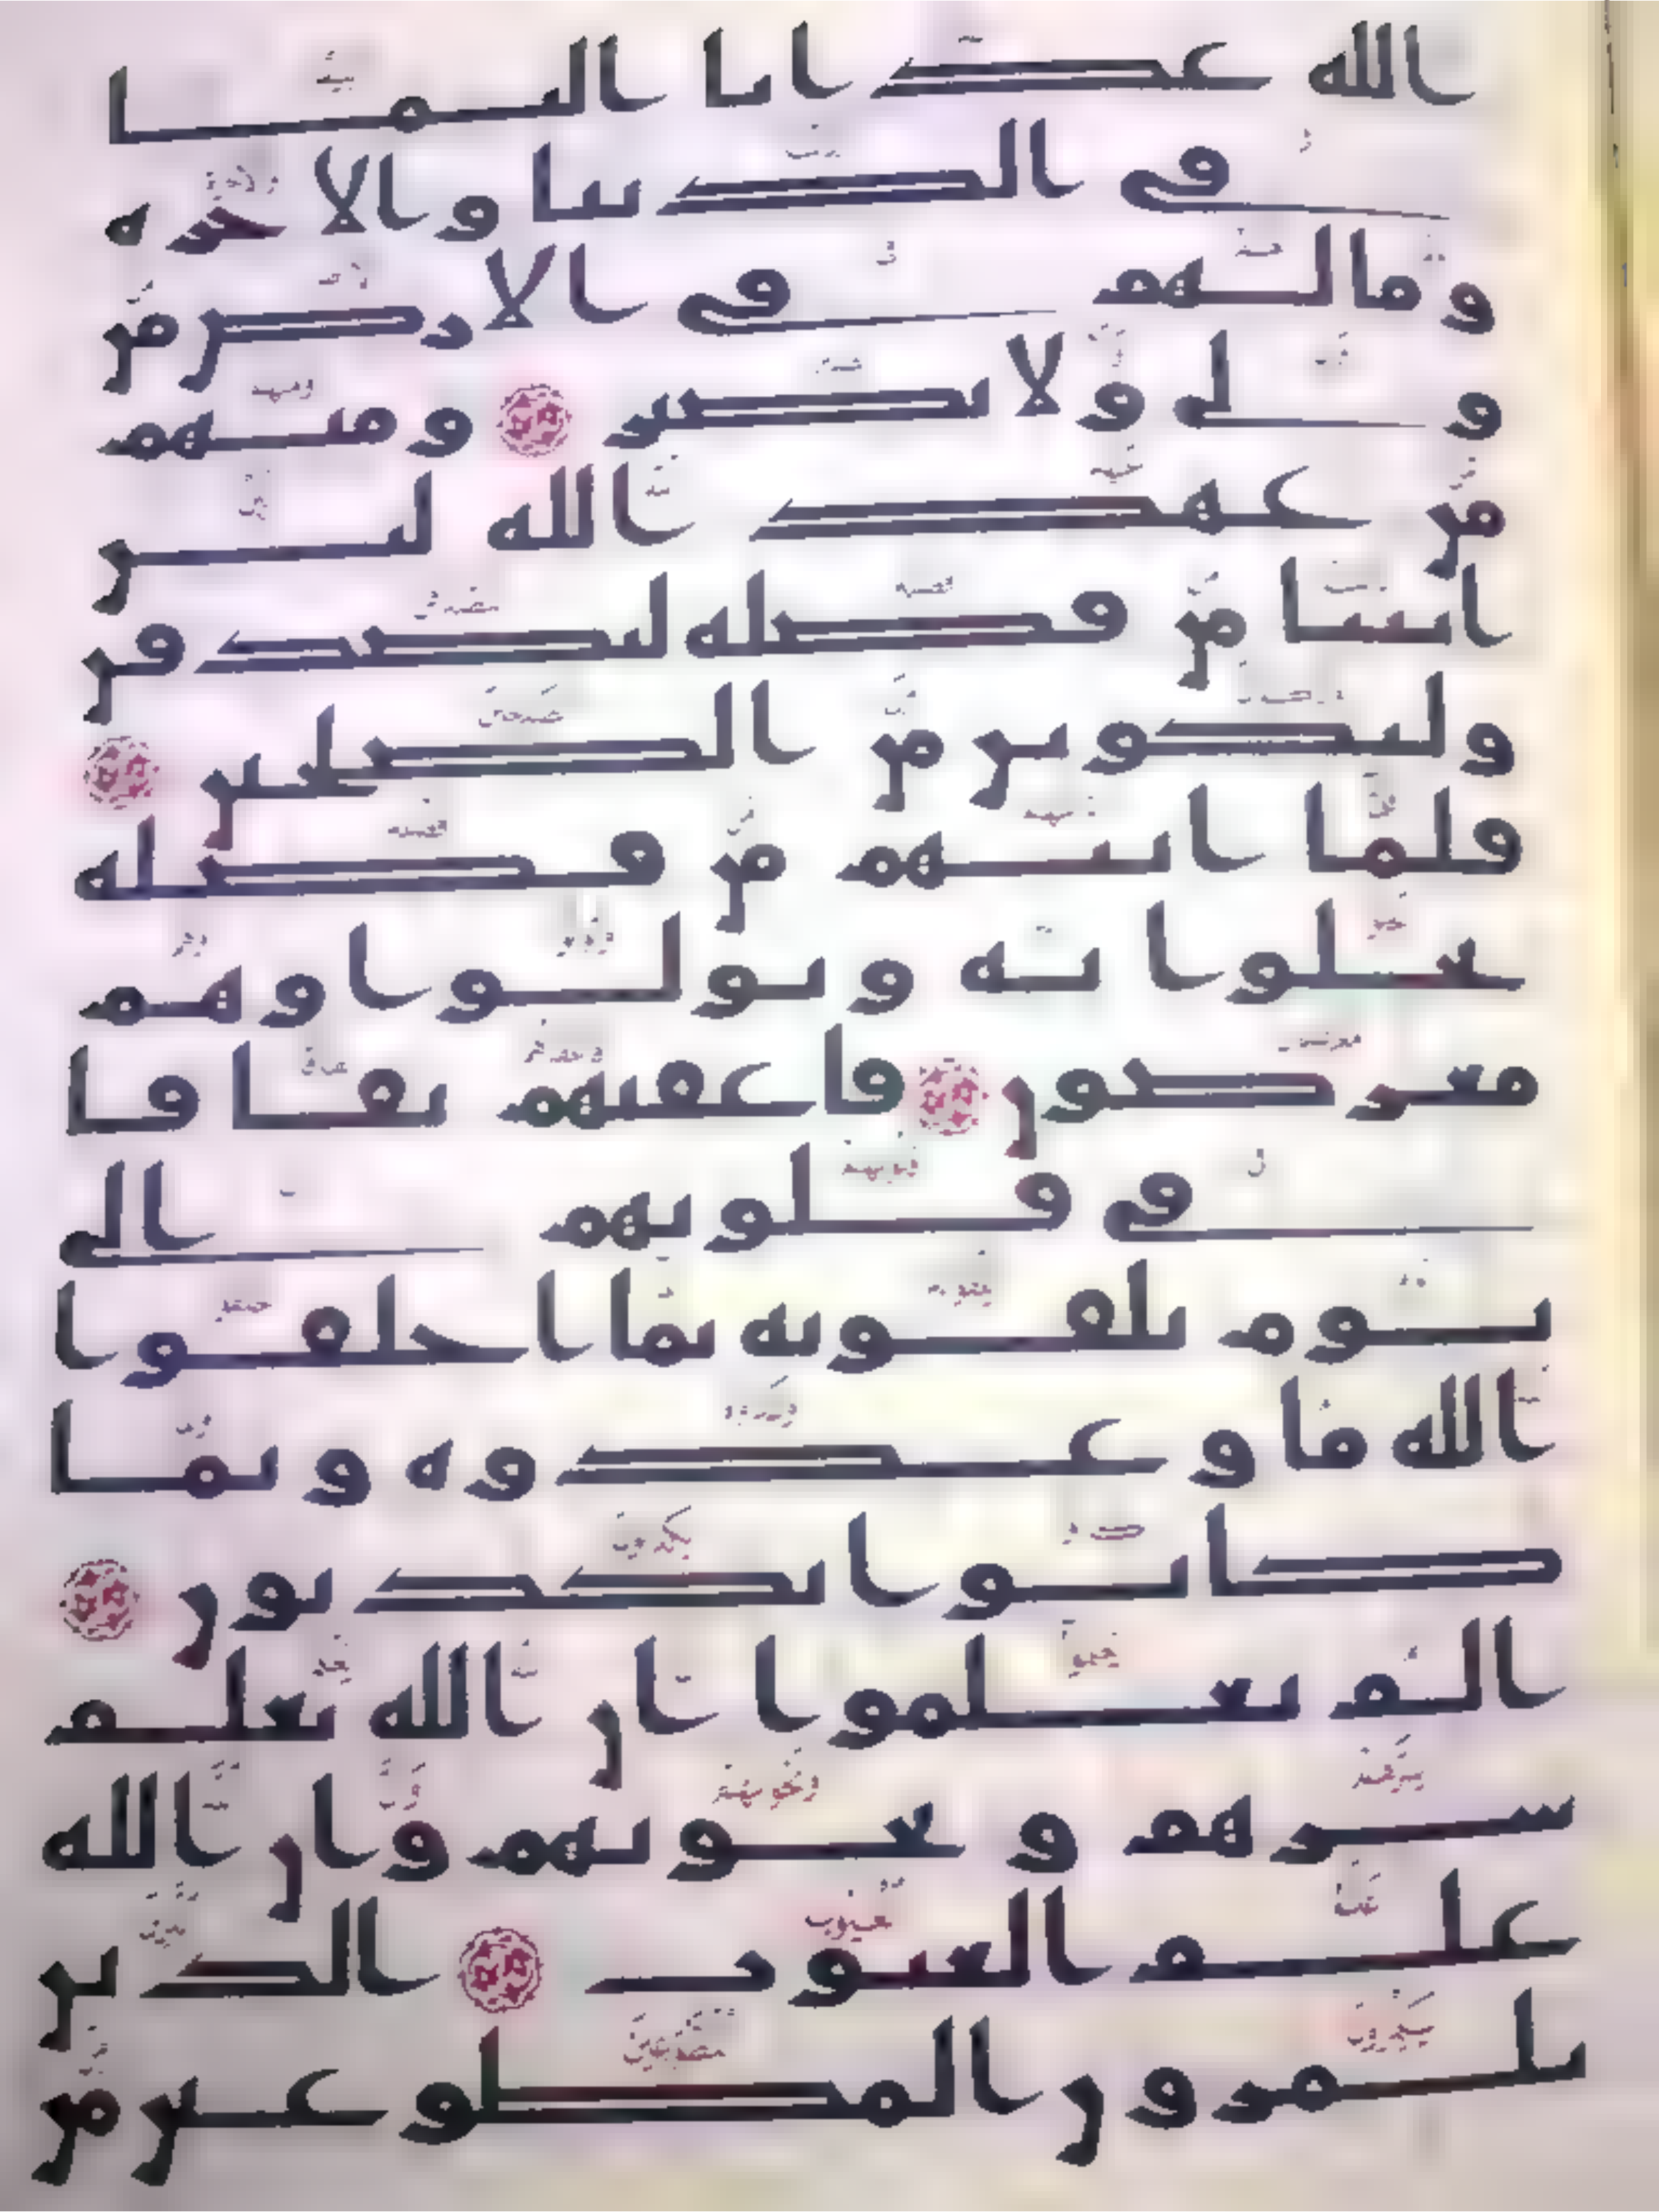 الله عذابا اليما
في الدنيا والاخره
وما لهم في الارض من
ولي ولا نصير ومنهم
من عهد الله لئن
اتينا من فضله لنصدقن
ولنكونن من الصلحين
فلما اتيهم من فضله
بخلوا به وتولوا وهم
معرضون فاعقبهم نفاقا
في قلوبهم الى
يوم يلقونه بما اخلفوا
الله ما وعدوه وبما
كانوا يكذبون
الم يعلموا ان الله يعلم
سرهم ونجويهم وان الله
علم الغيوب الذين
يلمزون المطوعين من